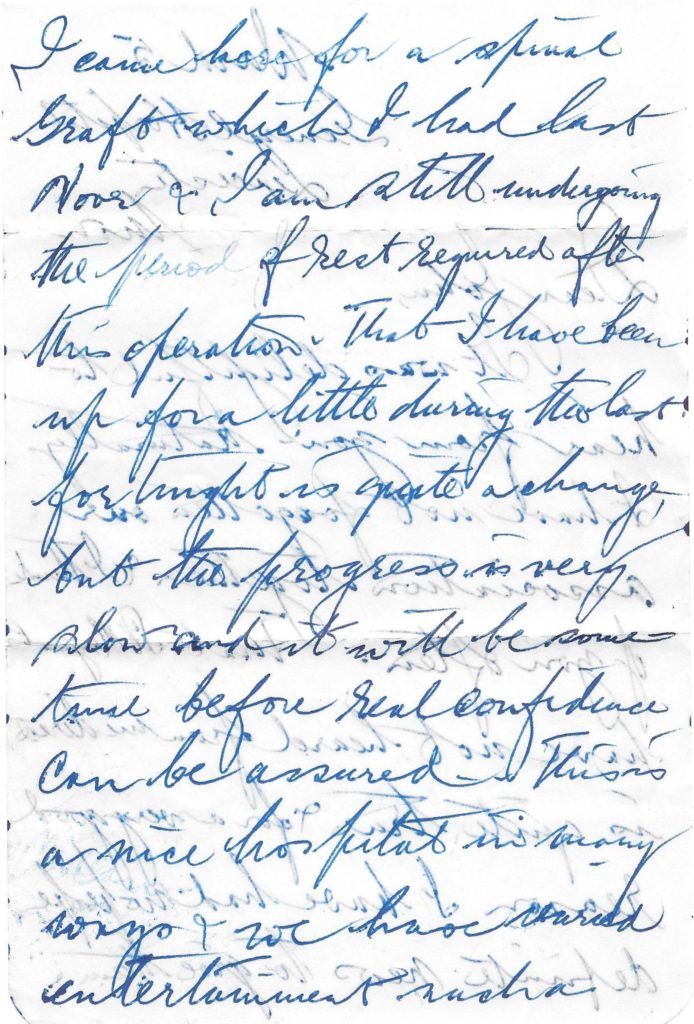 I came here for a spinal
Graft which I had last
Novr & I am still undergoing
the period of rest required after
this operation. That I have been
up for a little during the last
fortnight is quite a change,
but the progress is very
slow and it will be some-
time before real confidence
can be assured. This is
a nice hospital in many
ways & we have varied
entertainment such a